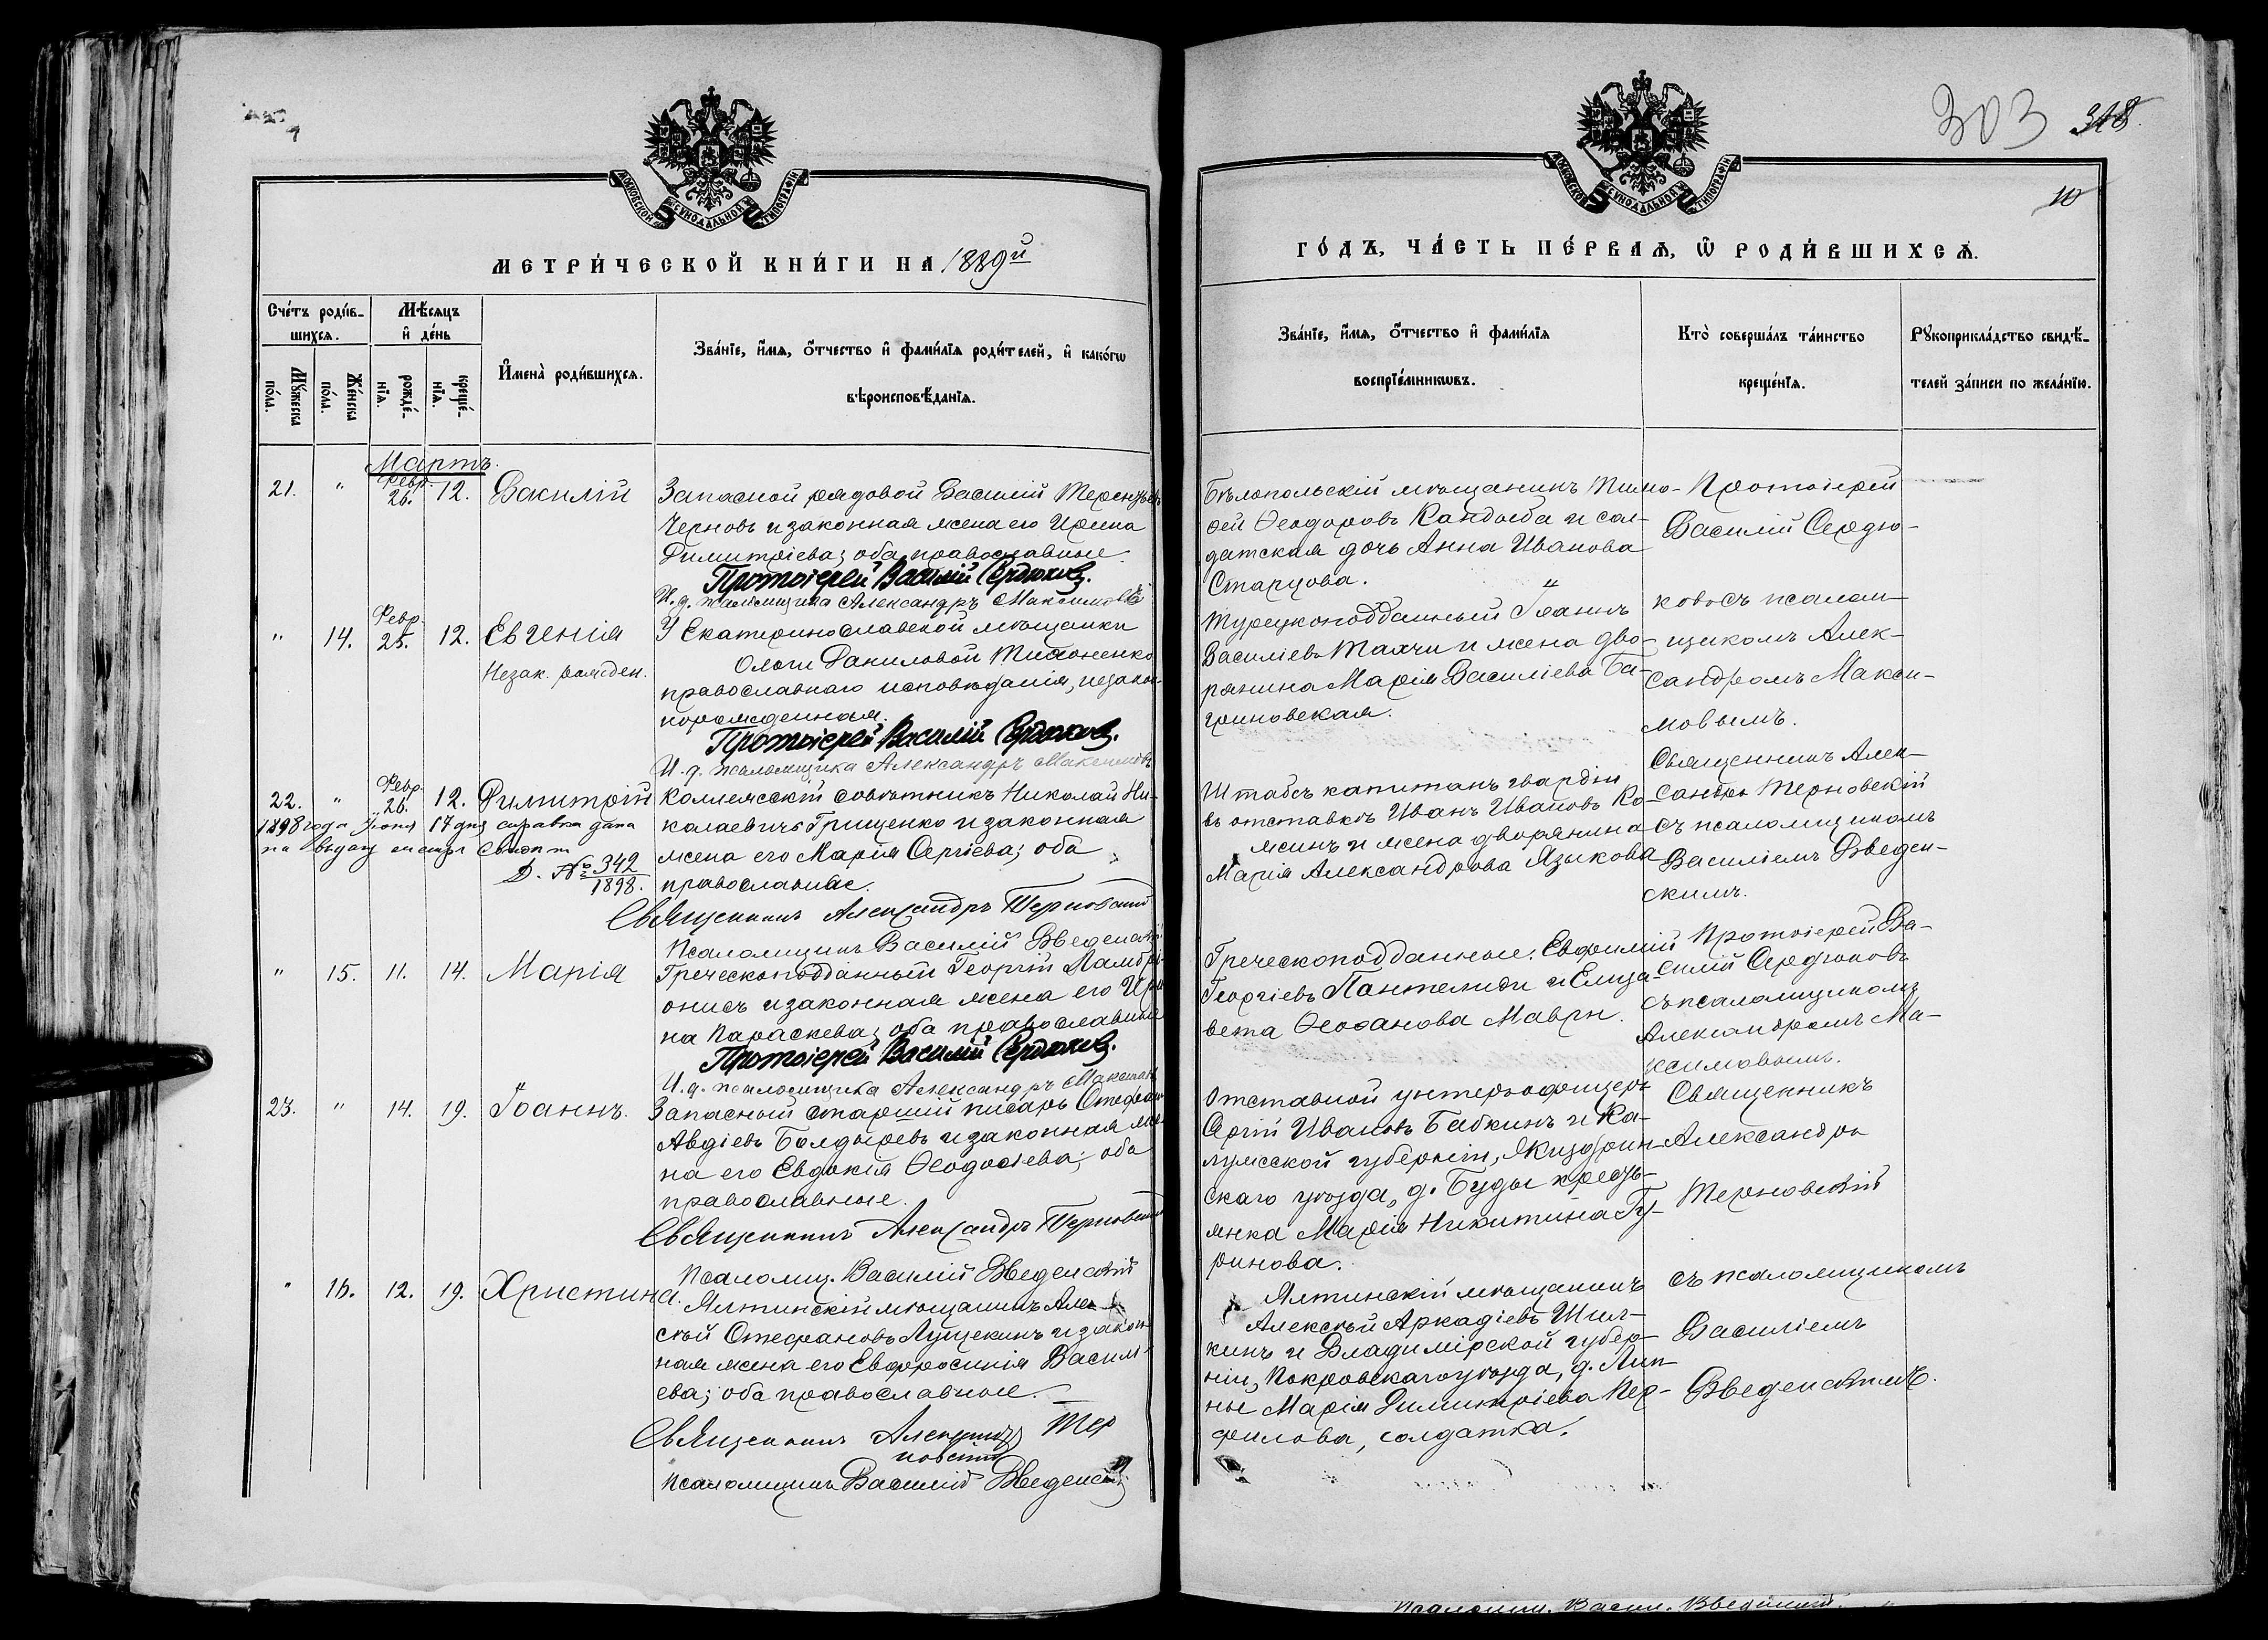 303 318.
10
МОСКОВСКОЙ СѴНОДАЛЬНОЙ ТИПОГРАФІИ
МЕТРИ́ЧЕСКОЙ КНИ́ГИ НА 1889й
Сче́тъ роди́в-
шихсѧ.
Мꙋ́жеска
по́ла.
Же́нска
по́ла.
Мѣ́сѧцъ
и҆ де́нь
рожде́-
нїѧ.
креще́-
нїѧ.
И҆мена̀ роди́вшихсѧ.
Зва́нїе, и҆́мѧ, ѻ҆́тчество и҆ фами́лїѧ роди́телей, и҆ како́гѡ
вѣроисповѣ́данїѧ.
Мартъ.
21. " Февр. 26. 12. Василій
Запасной рядовой Василій Терентьевъ
Черновъ и законная жена его Ирина
Димитріева; оба православные
Протоіерей Василій Сердюковъ.
И. д. псаломщика Александръ Максимовъ
" 14. Февр. 25. 12. Евгенія
Незак. рожден.
У Екатеринославской мѣщанки
Ольги Даниловой Тихоненко
православнаго исповѣданія, незакон-
норожденная.
Протоіерей Василій Сердюковъ.
И. д. псаломщика Александръ Максимовъ
22. " Февр. 26. 12. Димитрій
1898 года Іюня 17 дня справка дана
на выдачу
Д. № 342
1898.
Коллежскій совѣтникъ Николай Ни-
колаевичъ Грищенко и законная
жена его Марія Сергіева; оба
православные.
Священникъ Александръ Терновскій
Псаломщикъ Василій Введенскій
" 15. 11. 14. Марія
Греческоподданный Георгій Ламбрі-
онисъ и законная жена его Ири-
на Параскева; оба православные
Протоіерей Василій Сердюковъ.
И. д. псаломщика Александръ Максимовъ
23. " 14. 19. Іоаннъ.
Запасный старшій писарь Стефанъ
Авдіевъ Болдыревъ и законная же-
на его Евдокія Ѳеодосіева; оба
православные.
Священникъ Александръ Терновскій
Псаломщ. Василій Введенскій
" 16. 12. 19. Христина.
Ялтинскій мѣщанинъ Але-
ксѣй Стефановъ Лущекинъ и закон-
ная жена его Евфросинія Василі-
ева; оба православные.
Священникъ Александръ Тер
новскій
Псаломщикъ Василій Введенскій
МОСКОВСКОЙ СѴНОДАЛЬНОЙ ТИПОГРАФІИ
ГО́ДЪ, ЧА́СТЬ ПЕ́РВАѦ, Ѡ҆ РОДИ́ВШИХСѦ.
Зва́нїе, и҆́мѧ, ѻ҆́тчество и҆ фами́лїѧ
воспрїе́мникѡвъ.
Кто̀ соверша́лъ та́инство
креще́нїѧ.
Рꙋкоприкла́дство свидѣ́-
телей за́писи по жела́нїю.
Бѣлопольскій мѣщанинъ Тимо-
фей Ѳеодоровъ Кандыба и сол-
датская дочь Анна Иванова
Старцова.
Протоіерей
Василій Сердю-
ковъ съ псалом-
щикомъ Алек-
сандромъ Макси-
мовымъ.
Турецкоподданный Іоаннъ
Василіевъ Тахчи и жена дво-
рянина Марія Василіева Ба-
гриновская.
Штабсъ капитанъ гвардіи
въ отставкѣ Иванъ Ивановъ Ко-
жинъ и жена дворянина
Марія Александрова Языкова
Священникъ Алек-
сандръ Терновскій
съ псаломщикомъ
Василіемъ Введен-
скимъ.
Греческоподданные: Евфимій
Георгіевъ Пантелиди и Елиза-
вета Ѳеофанова Маври.
Протоіерей Ва-
силій Сердюковъ
съ псаломщикомъ
Александромъ Ма-
ксимовымъ.
Отставной унтеръ-офицеръ
Сергій Ивановъ Бабкинъ и Ка-
лужской губерніи, Жиздрин-
скаго уѣзда, д. Буды кресть-
янка Марія Никитина Гу-
ринова.
Священникъ
Александръ
Терновскій
съ псаломщикомъ
Василіемъ
Введенскимъ.
Ялтинскій мѣщанинъ
Алексѣй Аркадіевъ Шил-
кинъ и Владимірской губер-
ніи, Покровскаго уѣзда, д. Лип-
ны Марія Димитріева Пер-
филова, солдатка.
Псаломщ. Васил. Введенскій.